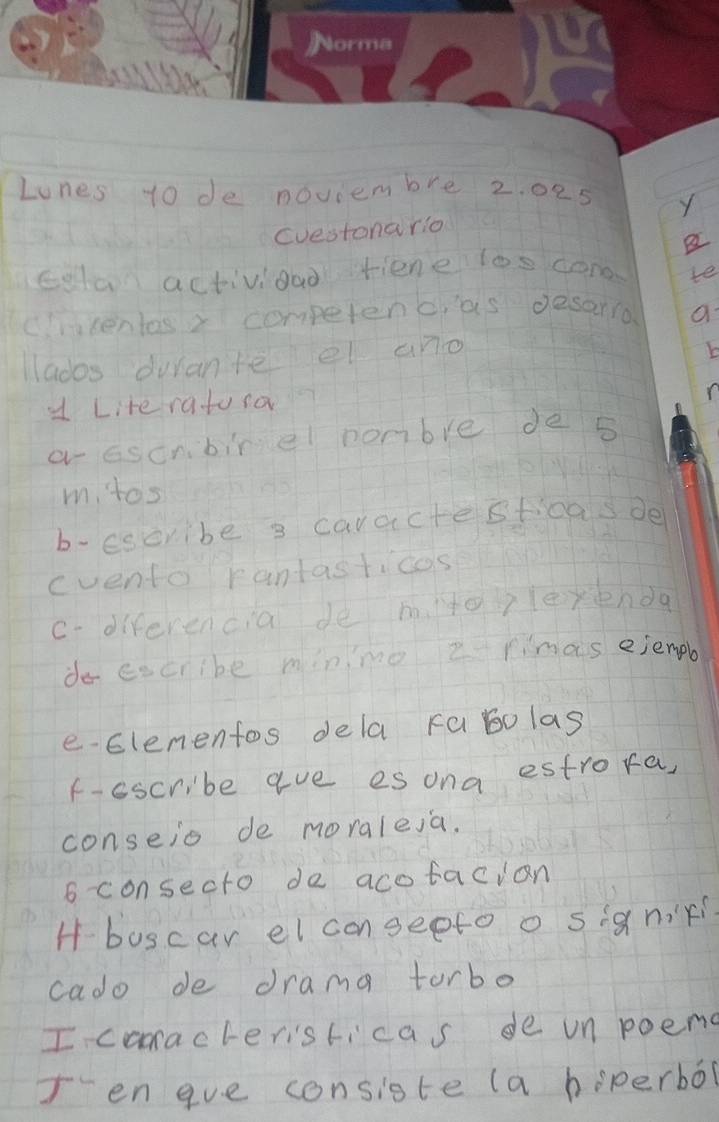 Norma
Lunes 10 de noviembre 2.025
cuestonario
Esta actividad tiene los cono-
cimientos y competencias desarro
llados durante el año
1 Literatura
a- escribir el nombre de 5
mitos
b- escribe 3 caracteristicas de
cuento fantasticos
c- diferencia de mito y leyenda
d- escribe minimo 2 rimas ejemplo
e- Elementos dela Fabolas
f- escribe que es una estrofa,
consejo de moraleja.
G consecto de acotacion
H- buscar el consepto o signifi-
cado de drama turbo
I- caracteristicas de un poema
J- en que consiste la hiperbol
y
te
a-
b
n